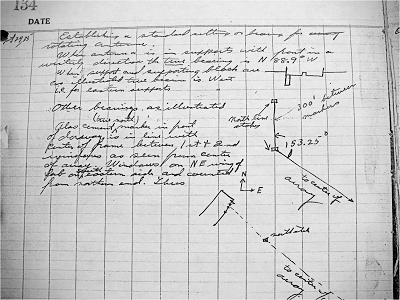 134
DATE
Establishing a standard setting or bearing for array
rotating antenna.
When antenna is in supports with point in a
westerly direction the true bearing is N 88.9° W
West support and supporting block are
as illustrated true bearing is West
for eastern supports
Other bearings as illustrated
(true north)
Glass cement marker in front
of doorway is in line with
center of frame between 1st + 2nd
windows as seen from center
of array. Windows on NE wing of
lab on eastern side and counted
from northern end. Thus
North line
stakes
300' between
markers
153.25°
to center of
array
N
E
north stake
to center of
array